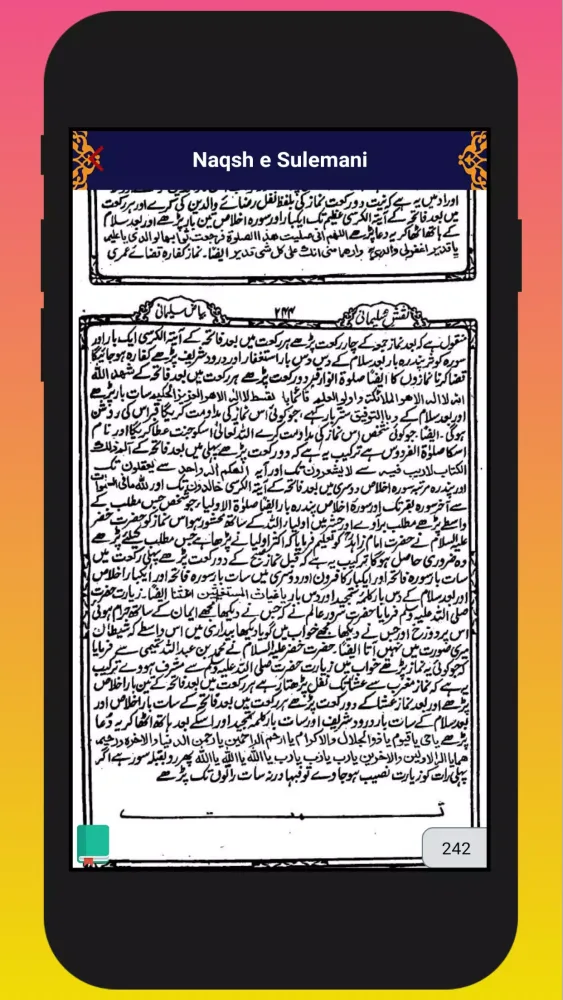 Naqsh e Sulemani
اورادمیں یہ ہے کہ نیت دو رکعت نماز کی بلفظ نفل رضائے والدین کی کرے اور ہر رکعت
میں بعد فاتحہ کے آیتہ الکرسی عظیم تک ایکبار اور سورہ اخلاص تین بار پڑھے اور بعد سلام
کے ہاتھ اٹھا کر یہ دعا پڑھے اللھم انی صلیت ھذا الصلوٰۃ فرجعت ثوابھا لوالدی یا علیم
یا قدیر اغفرلی والدی وارھما منی انک علی کل شی قدیر ایضاً۔ نماز کفارہ قضائے عمری
نقش سلیمانی
۲۴۴
بیاض سلیمانی
منقول ہے کہ بعد نماز جمعہ کے چار رکعت پڑھے ہر رکعت میں بعد فاتحہ کے آیتہ الکرسی ایک بار اور
سورہ کوثر پندرہ بار بعد سلام کے دس دس بار استغفار اور درود شریف پڑھے کفارہ ہو جائیگا
قضا کرنا نمازوں کا ایضاً صلوۃ انوار قبر دو رکعت پڑھے ہر رکعت میں بعد فاتحہ کے شھد اللہ
انہ لا الہ الا ھو والملائکۃ واولو العلم قائما بالقسط لا الہ الا ھو العزیز الحکیم سات بار پڑھے
اور بعد سلام کے وما التوفیق ستر بار ہے جو کوئی اس نماز کی مداومت کریگا قبر اس کی روشن
ہوگی۔ ایضاً۔ جو کوئی شخص اس نماز کی مداومت کرے اللہ تعالیٰ اسکو جنت عطا کریگا اور نام
اسکا صلوۃ الفردوس ہے ترکیب یہ ہے کہ دو رکعت پڑھے پہلی میں بعد فاتحہ کے الم ذلک
الکتاب لا ریب فیہ سے لا یشعرون تک اور آیہ الھکم الہ واحد سے یعقلون تک
اور پندرہ مرتبہ سورہ اخلاص دوسری میں بعد فاتحہ کے آیتہ الکرسی خالدون تک اور للہ مافی السموات
سے آخر سورہ بقر تک اور سورہ اخلاص پندرہ بار ایضاً صلوۃ الاولیاء جو شخص جس مطلب کے
واسطے پڑھے مطلب براوے اور حشر میں اولیاء اللہ کے ساتھ محشور ہو اس نماز کو حضرت خضر
علیہ السلام نے حضرت امام زاہد کو تعلیم فرمایا کہ اکثر اولیا نے پڑھا ہے جس مطلب کیلئے پڑھے
وہ ضروری حاصل ہوگا ترکیب یہ ہے کہ قبل نماز صبح کے دو رکعت پڑھے پہلی رکعت میں
سات بار سورہ فاتحہ اور ایکبار کافرون اور دوسری میں سات بار سورہ فاتحہ اور ایکبار اخلاص
اور بعد سلام کے دس بار کلمہ تمجید اور دس بار یا غیاث المستغیثین اغثنا ایضاً۔ زیارت حضرت
صلی اللہ علیہ وسلم فرمایا حضرت سرور عالم نے کہ جس نے دیکھا مجھے ایمان کے ساتھ حرام ہوئی
اس پر دوزخ اور جس نے دیکھا مجھے خواب میں گویا دیکھا بیداری میں اس واسطے کہ شیطان
میری صورت میں نہیں آتا ایضاً۔ حضرت خضر علیہ السلام نے محمد بن عبد اللہ تمیمی سے فرمایا
کہ جو کوئی یہ نماز پڑھے خواب میں زیارت حضرت صلی اللہ علیہ وسلم سے مشرف ہووے ترکیب
یہ ہے کہ نماز مغرب سے عشا تک نفل پڑھتا رہے ہر رکعت میں بعد فاتحہ کے تین بار اخلاص
پڑھے اور بعد نماز عشا کے دو رکعت پڑھے ہر رکعت میں بعد فاتحہ کے سات بار اخلاص اور
بعد سلام کے سات بار درود شریف اور سات بار کلمہ تمجید اور اسکے بعد ہاتھ اٹھا کر یہ دعا
پڑھے یا حی یا قیوم یا ذوالجلال والاکرام یا ارحم الراحمین یا رحمن الدنیا والاخرۃ ورحیم
ھما یا الہ الاولین والاخرین یا رب یا رب یا رب یا اللہ یا اللہ یا اللہ پھر رو بقبلہ سو رہے اگر
پہلی رات کو زیارت نصیب ہو جاوے تو فبہا ورنہ سات راتوں تک پڑھے
تمت
242